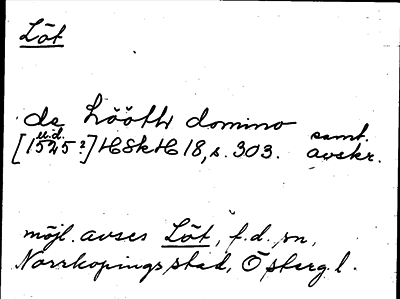 Löt
de Lööth domino
u.d. samt.
[1545?] HSkH 18, s. 303. avskr.
möjl. avses Löt, f.d. sn,
Norrköpings stad, Österg. l.